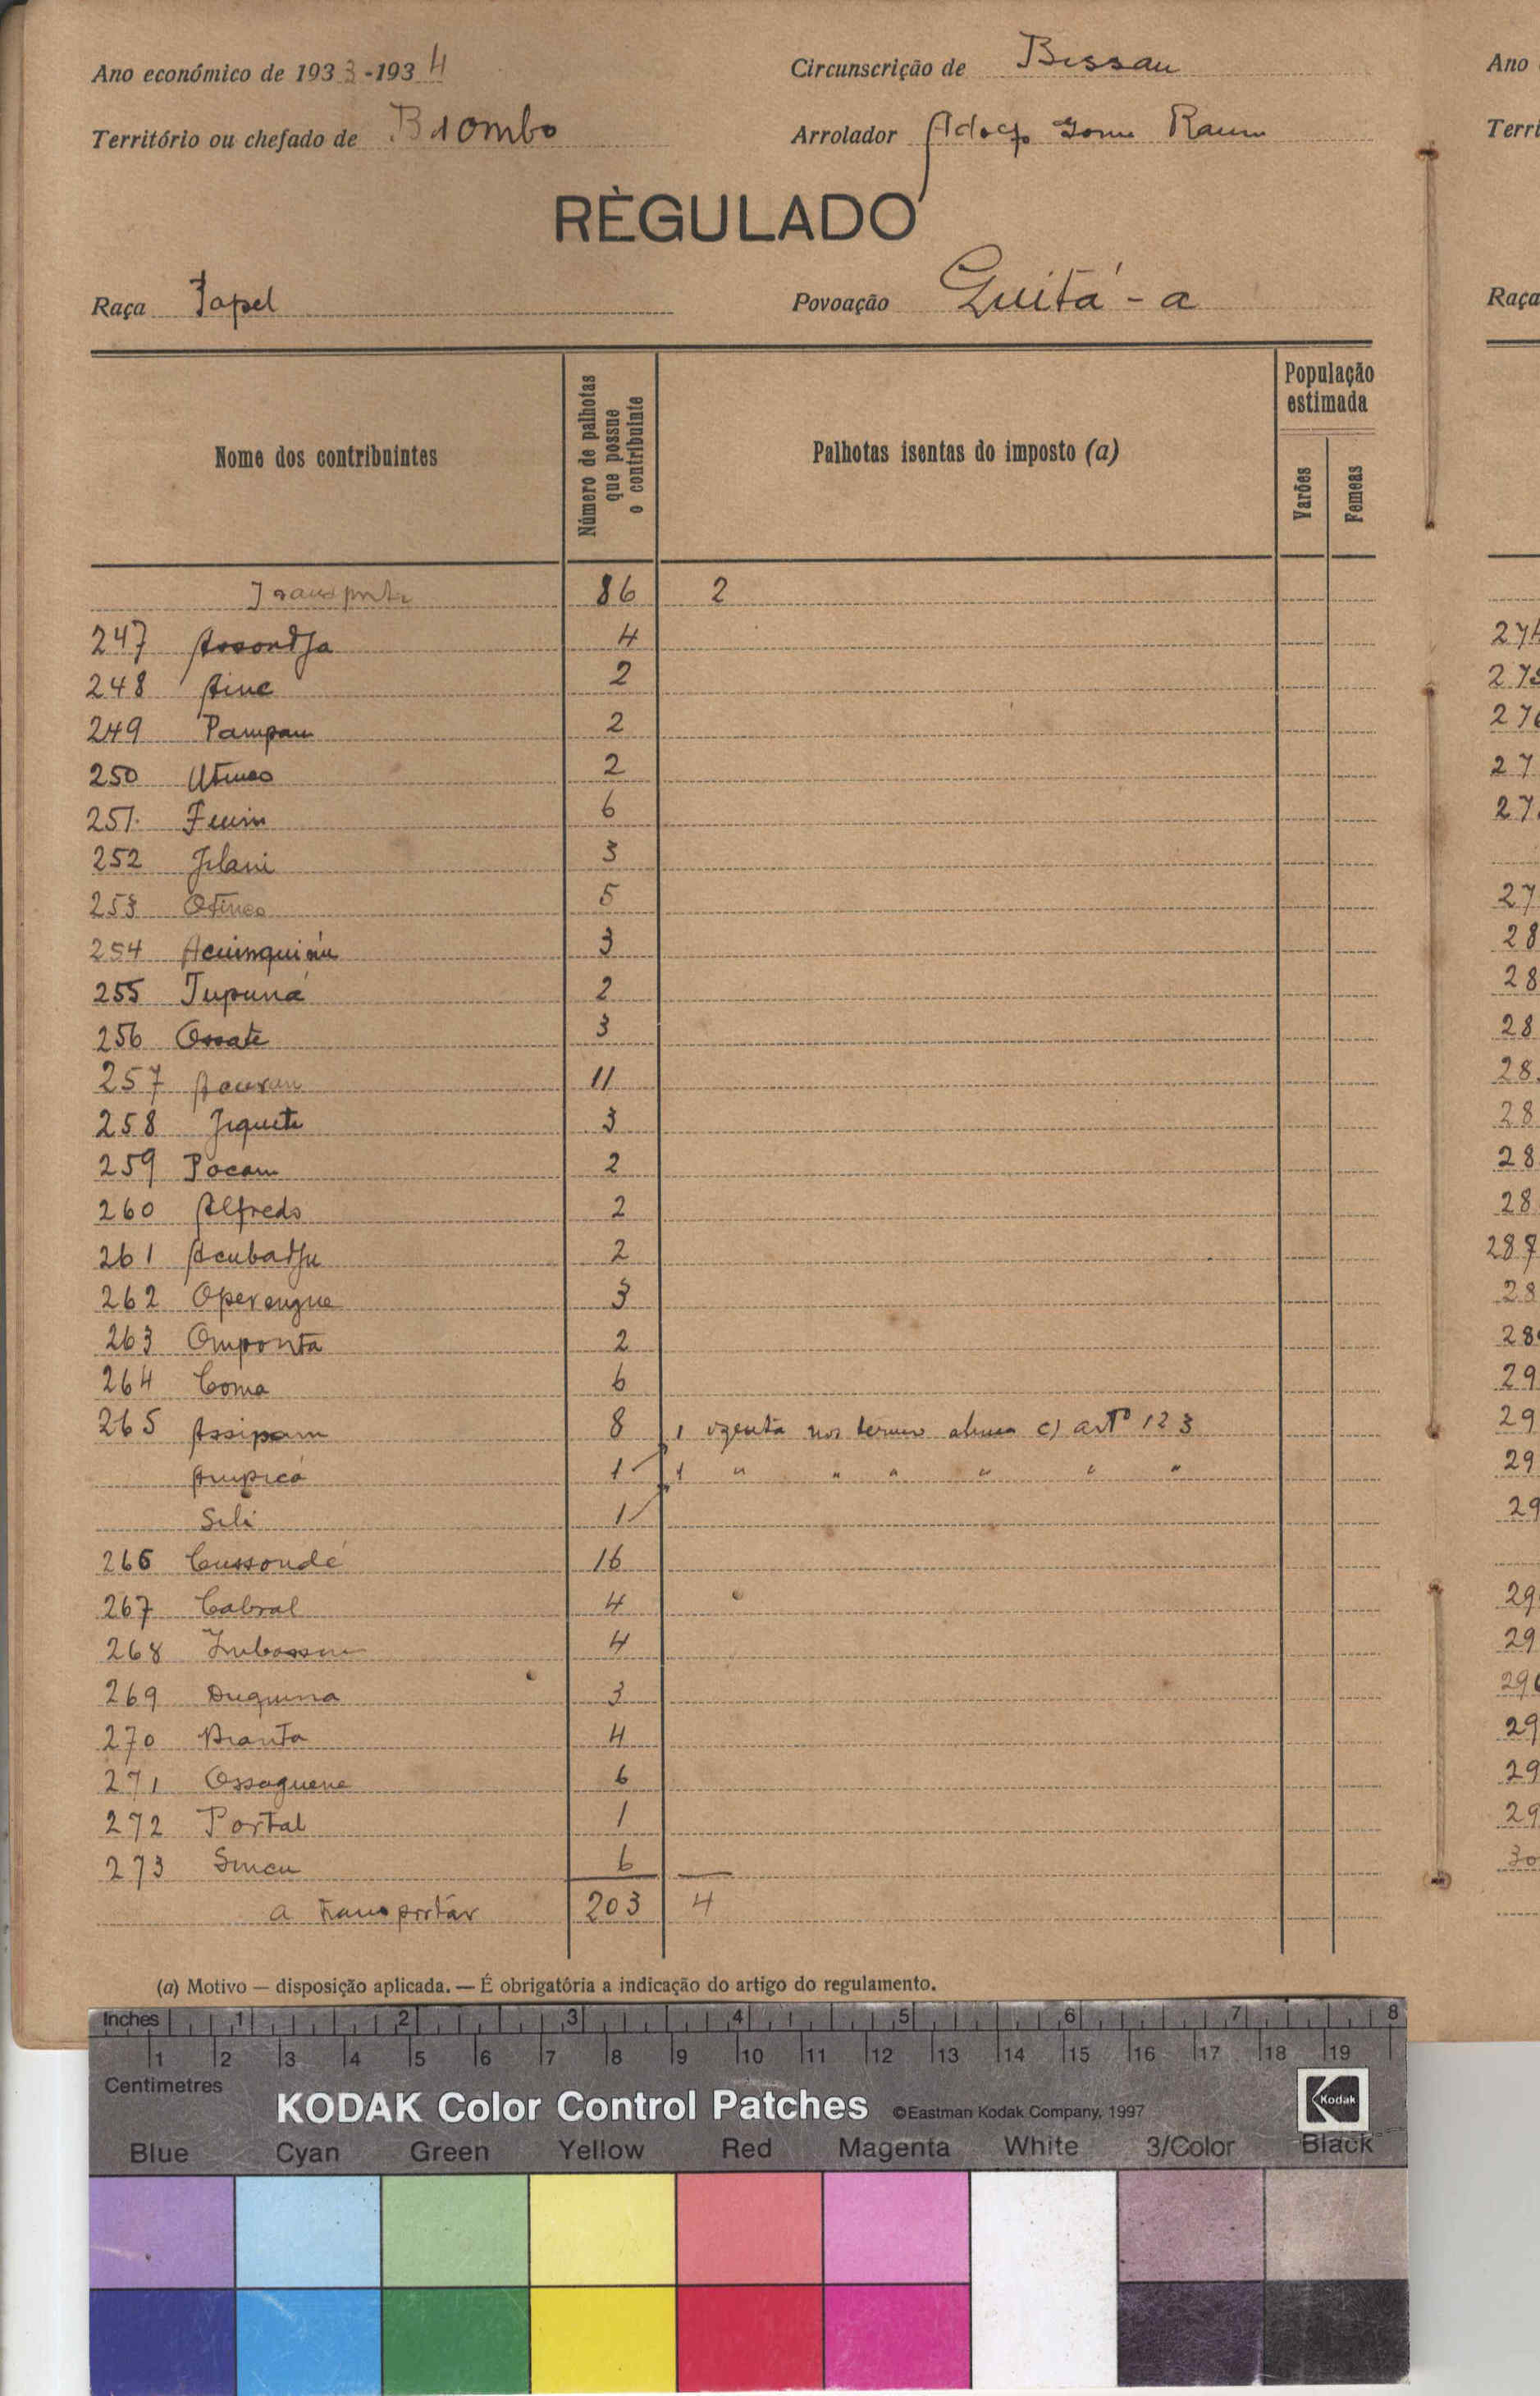 Ano económico de 1933-1934
Circunscrição de Bissau
Território ou chefado de Biombo
Arrolador Adolfo Gomes
RÈGULADO
Raça Papel
Povoação Quitá - a
Nome dos contribuintes
Número de palhotas que possue o contribuinte
Palhotas isentas do imposto (a)
População estimada
Varões
Femeas
Transporte 86 2
247 Assondja 4
248 2
249 Pampau 2
250 2
251 6
252 3
253 5
254 3
255 Tupuná 2
256 Ossate 3
257 11
258 Jiquete 3
259 Pocam 2
260 Alfredo 2
261 Acubadju 2
262 Operengue 3
263 Omponta 2
264 Coma 6
265 Assipam 8 1 izenta nos termos alinea c) artº 123
Ampicá 1 1 " " " " " "
Sili 1
266 Cussondé 16
267 Cabral 4
268 4
269 Duquina 3
270 4
271 Ossaguene 6
272 Portal 1
273 6
a transportar 203 4
(a) Motivo — disposição aplicada. — É obrigatória a indicação do artigo do regulamento.
Ano
Terri
Raça
Inches 1 2 3 4 5 6 7 8
1 2 3 4 5 6 7 8 9 10 11 12 13 14 15 16 17 18 19
Centimetres
KODAK Color Control Patches ©Eastman Kodak Company, 1997 Kodak
Blue Cyan Green Yellow Red Magenta White 3/Color Black